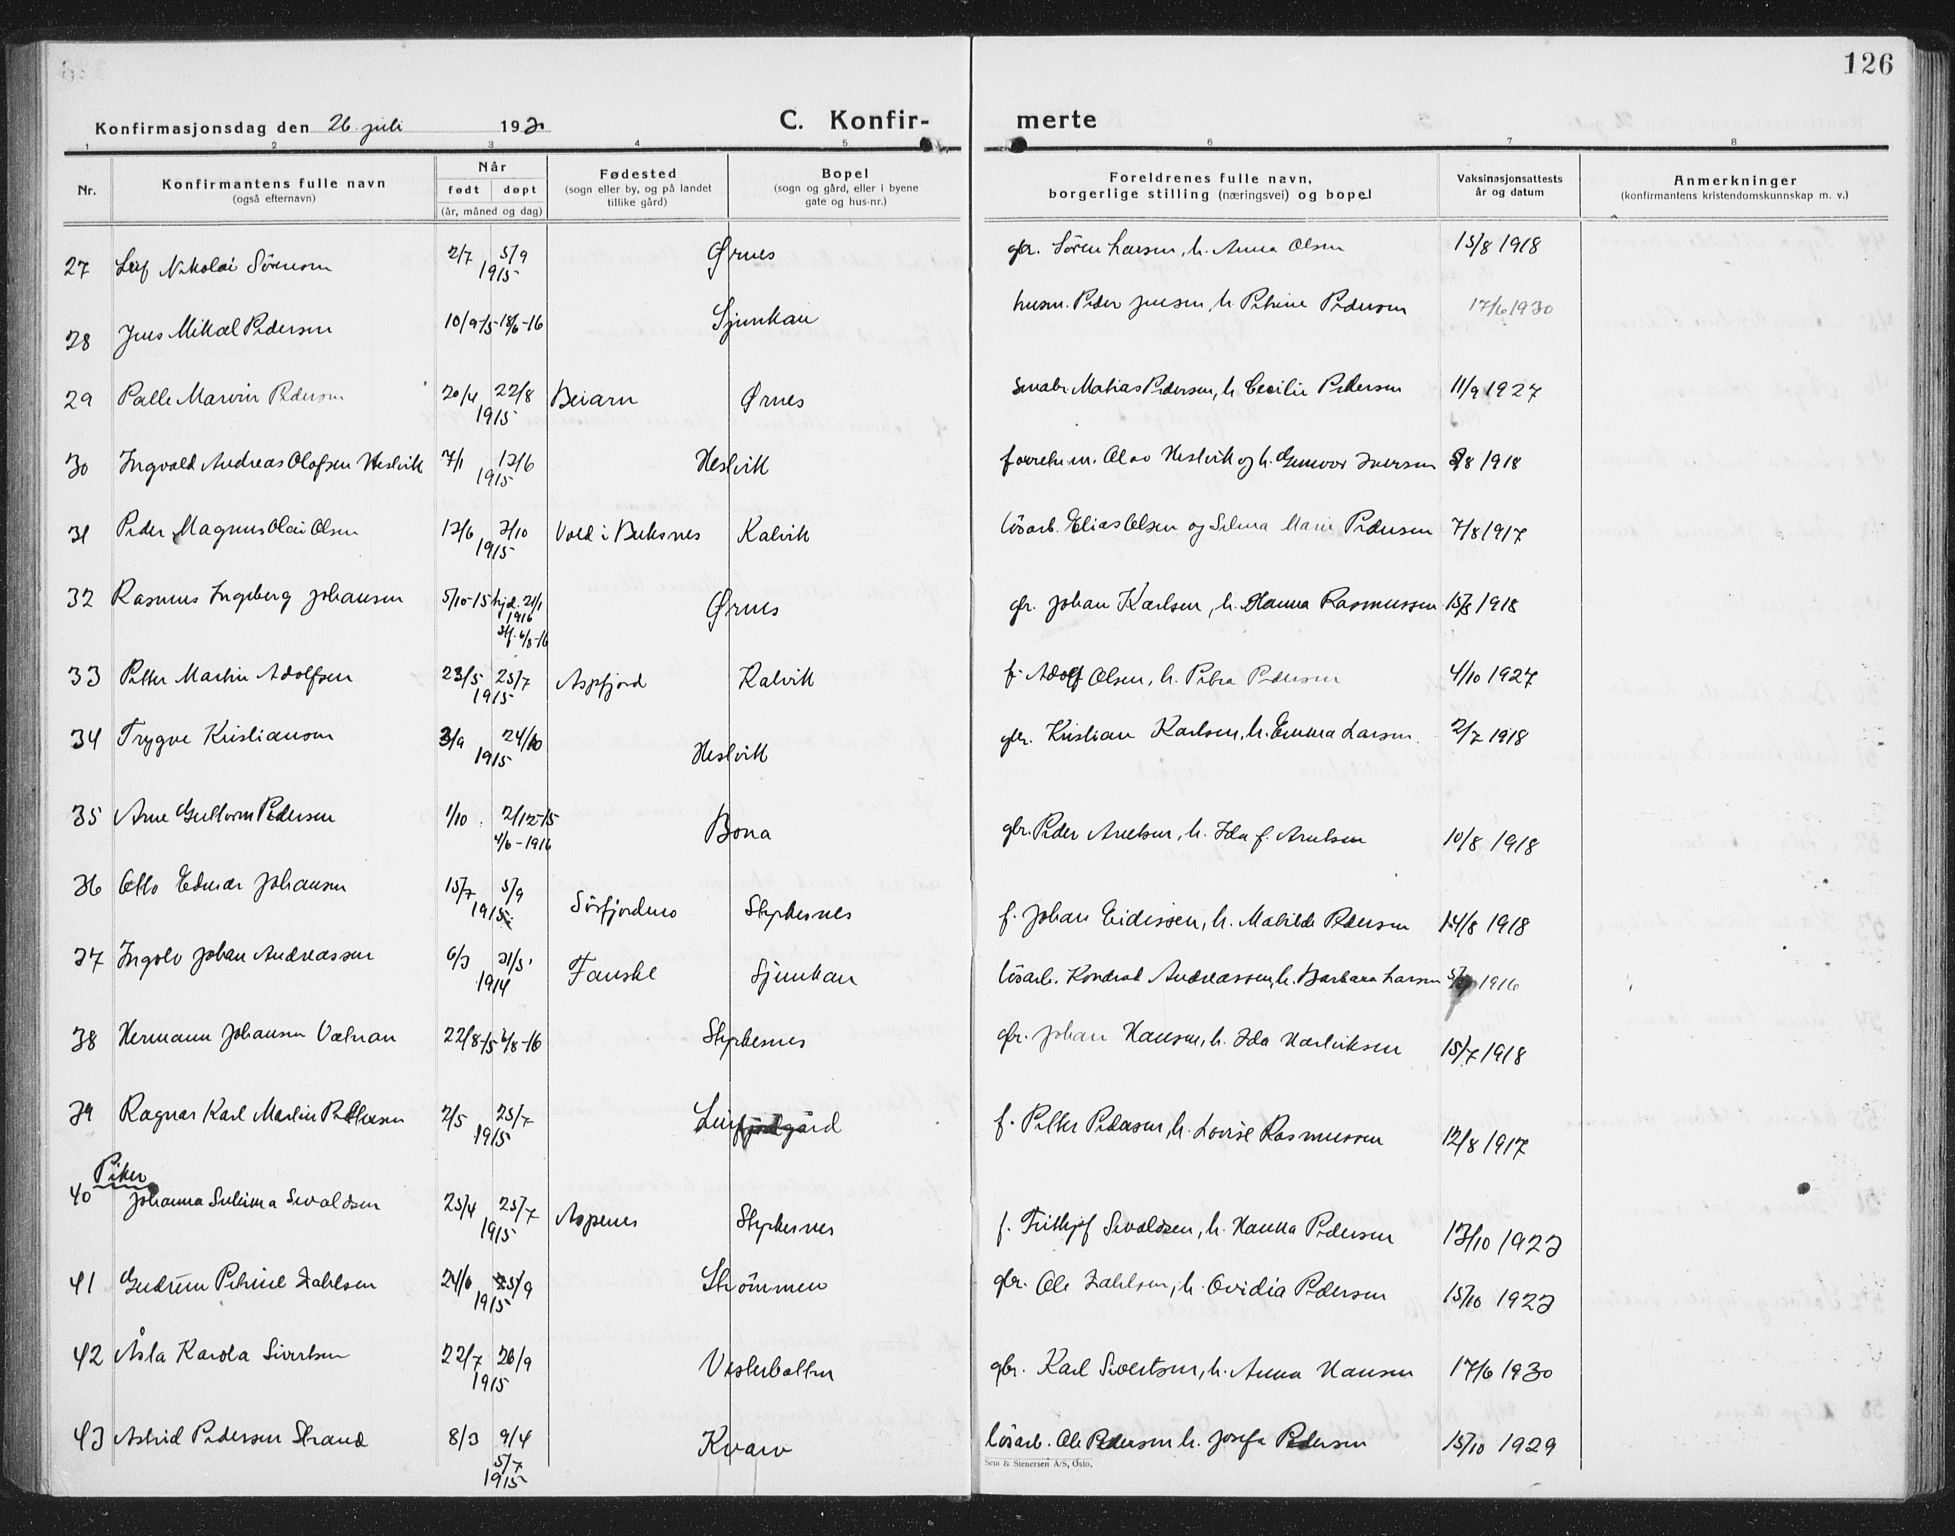 126
Konfirmasjonsdag den 26 juli 1930
C. Konfir-
merte
1 2 3 4 5 6 7 8
Nr.
Konfirmantens fulle navn
(også efternavn)
Når
født døpt
(år, måned og dag)
Fødested
(sogn eller by, og på landet
tillike gård)
Bopel
(sogn og gård, eller i byene
gate og hus-nr.)
Foreldrenes fulle navn,
borgerlige stilling (næringsvei) og bopel
Vaksinasjonsattests
år og datum
Anmerkninger
(konfirmantens kristendomskunnskap m. v.)
27 Leif Nikolai Sörensen 2/7 5/9 1915 Ørnes gbr. Sören Larsen, h. Anna Olsen 15/8 1918
28 Jens Mikal Pedersen 10/9-15 18/6-16 Sjunkan husm. Peder Jensen, h. Petrine Pedersen 17/6 1930
29 Palle Marvin Pedersen 20/4 22/8 1915 Beiarn Ørnes småbr. Matias Pedersen, h. Cecilie Pedersen 11/9 1927
30 Ingvald Andreas Olofsen Heslvik 7/1 13/6 1915 Heslvik forretn.m. Olav Heslvik og h. Gunvor Iversen 8/8 1918
31 Peder Magnus Olai Olsen 13/6 3/10 1915 Vold i Buksnes Kalvik lösarb. Elias Olsen og Selma Marie Pedersen 7/8 1917
32 Rasmus Ingeberg Johansen 5/10-15 hjd. 21/1 1916 stf. 6/5-16 Ørnes gbr. Johan Karlsen, h. Hanna Rasmussen 15/8 1918
33 Petter Martin Adolfsen 23/5 25/7 1915 Aspfjord Kalvik f. Adolf Olsen, h. Petra Pedersen 4/10 1927
34 Trygve Kristiansen 3/9 24/10 1915 Heslvik gbr. Kristian Karlsen, h. Emma Larsen 2/7 1918
35 Arne Guttorm Pedersen 1/10 2/12-15 4/6-1916 Bona gbr. Peder Arntsen, h. Ida f. Arntsen 10/8 1918
36 Otto Edvar Johansen 15/7 5/9 1915 Sörfjorden Styrkesnes f. Johan Eidissen, h. Matilde Pedersen 14/8 1918
37 Ingolv Johan Andreassen 6/3 31/5 1914 Fauske Sjunkan lösarb. Kondrat Andreassen, h. Barbara Larsen 1916
38 Hermann Johansen Vatnan 22/8-15 6/8-16 Styrkesnes gbr. Johan Hansen, h. Ida Hartviksen 15/7 1918
39 Ragnar Karl Martin Pettersen 2/5 25/7 1915 Leirfjordgård f. Petter Pedersen, h. Lovise Rasmussen 12/8 1917
Piker
40 Johanna Sulima Sivaldsen 25/4 25/7 1915 Aspenes Styrkesnes f. Frithjof Sivaldsen, h. Hanna Pedersen 13/10 1923
41 Gudrun Petrine Dahlsen 24/6 25/9 1915 Strömmen gbr. Ole Dahlsen, h. Ovidia Pedersen 15/10 1923
42 Åsla Karola Sivertsen 22/7 26/9 1915 Vesterbotten gbr. Karl Sivertsen, h. Anna Hansen 17/6 1930
43 Astrid Pedersen Strand 8/3 9/4 5/7 1915 Kvarv lösarb. Ole Pedersen h. Josefa Pedersen 15/10 1929
Sem & Stenersen A/S, Oslo.